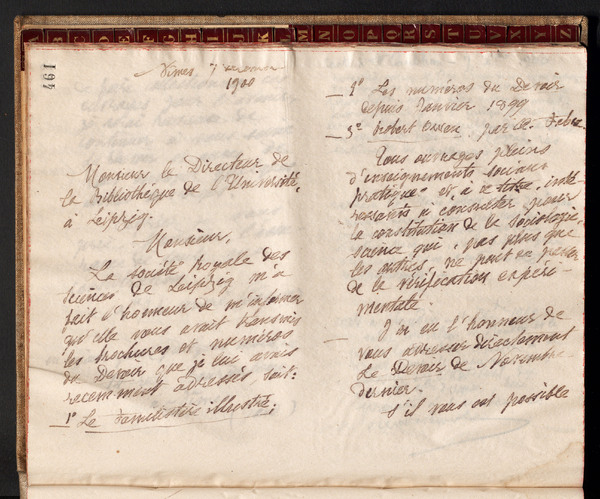 B C D E F G H I J K L M N O P Q R S T U V X Y Z
461
Nimes, 7 décembre
1900
Monsieur le Directeur de
la Bibliothèque de l'Université,
à Leipzig.
Monsieur,
La Société Royale des
Sciences de Leipzig m'a
fait l'honneur de m'informer
qu'elle vous avait transmis
les brochures et numéros
du Devoir que je lui avais
récemment adressés soit:
1º Le Familistère illustré;
2º Les numéros du Devoir
depuis Janvier 1899
3º Robert Owen, par A. Fabre.
Tous ouvrages pleins
d'enseignements sociaux
pratiques et à ce titre, inté-
ressants à consulter pour
la constitution de la sociologie,
science qui, pas plus que
les autres, ne peut se passer
de la vérification expéri-
mentale.
J'ai eu l'honneur de
vous adresser directement
Le Devoir de Novembre
dernier.
S'il vous est possible